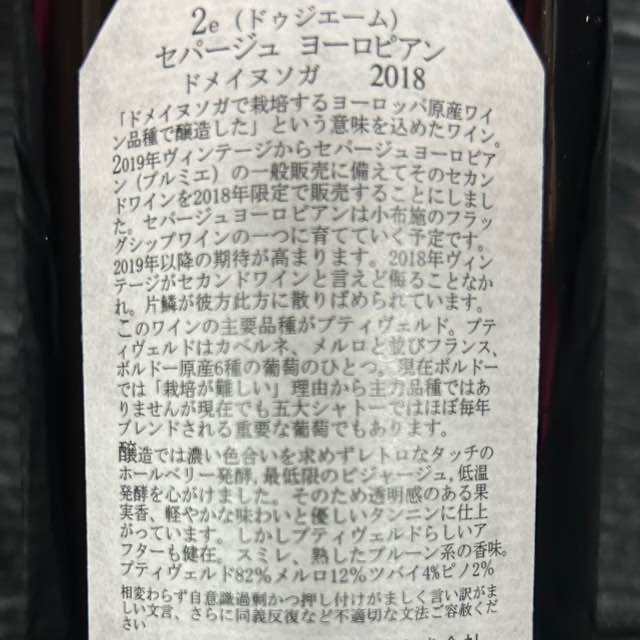 2e(ドゥジエーム)
セパージュ ヨーロピアン
ドメイヌソガ 2018
「ドメイヌソガで栽培するヨーロッパ原産ワイ
ン品種で醸造した」という意味を込めたワイン。
2019年ヴィンテージからセパージュヨーロピア
ン(プルミエ)の一般販売に備えてそのセカン
ドワインを2018年限定で販売することにしまし
た。セパージュヨーロピアンは小布施のフラッ
グシップワインの一つに育てていく予定です。
2019年以降の期待が高まります。2018年ヴィン
テージがセカンドワインと言えど侮ることなか
れ。片鱗が彼方此方に散りばめられています。
このワインの主要品種がプティヴェルド。プテ
ィヴェルドはカベルネ、メルロと並びフランス、
ボルドー原産6種の葡萄のひとつ。現在ボルドー
では「栽培が難しい」理由から主力品種ではあ
りませんが現在でも五大シャトーではほぼ毎年
ブレンドされる重要な葡萄でもあります。
醸造では濃い色合いを求めずレトロなタッチの
ホールベリー発酵,最低限のピジャージュ,低温
発酵を心がけました。そのため透明感のある果
実香、軽やかな味わいと優しいタンニンに仕上
がっています。しかしプティヴェルドらしいア
フターも健在。スミレ、熟したプルーン系の香味。
プティヴェルド82%メルロ12%ツバイ4%ピノ2%
相変わらず自意識過剰かつ押し付けがましく言い訳がま
しい文言、さらに同義反復など不適切な文法ご容赦くだ
さい